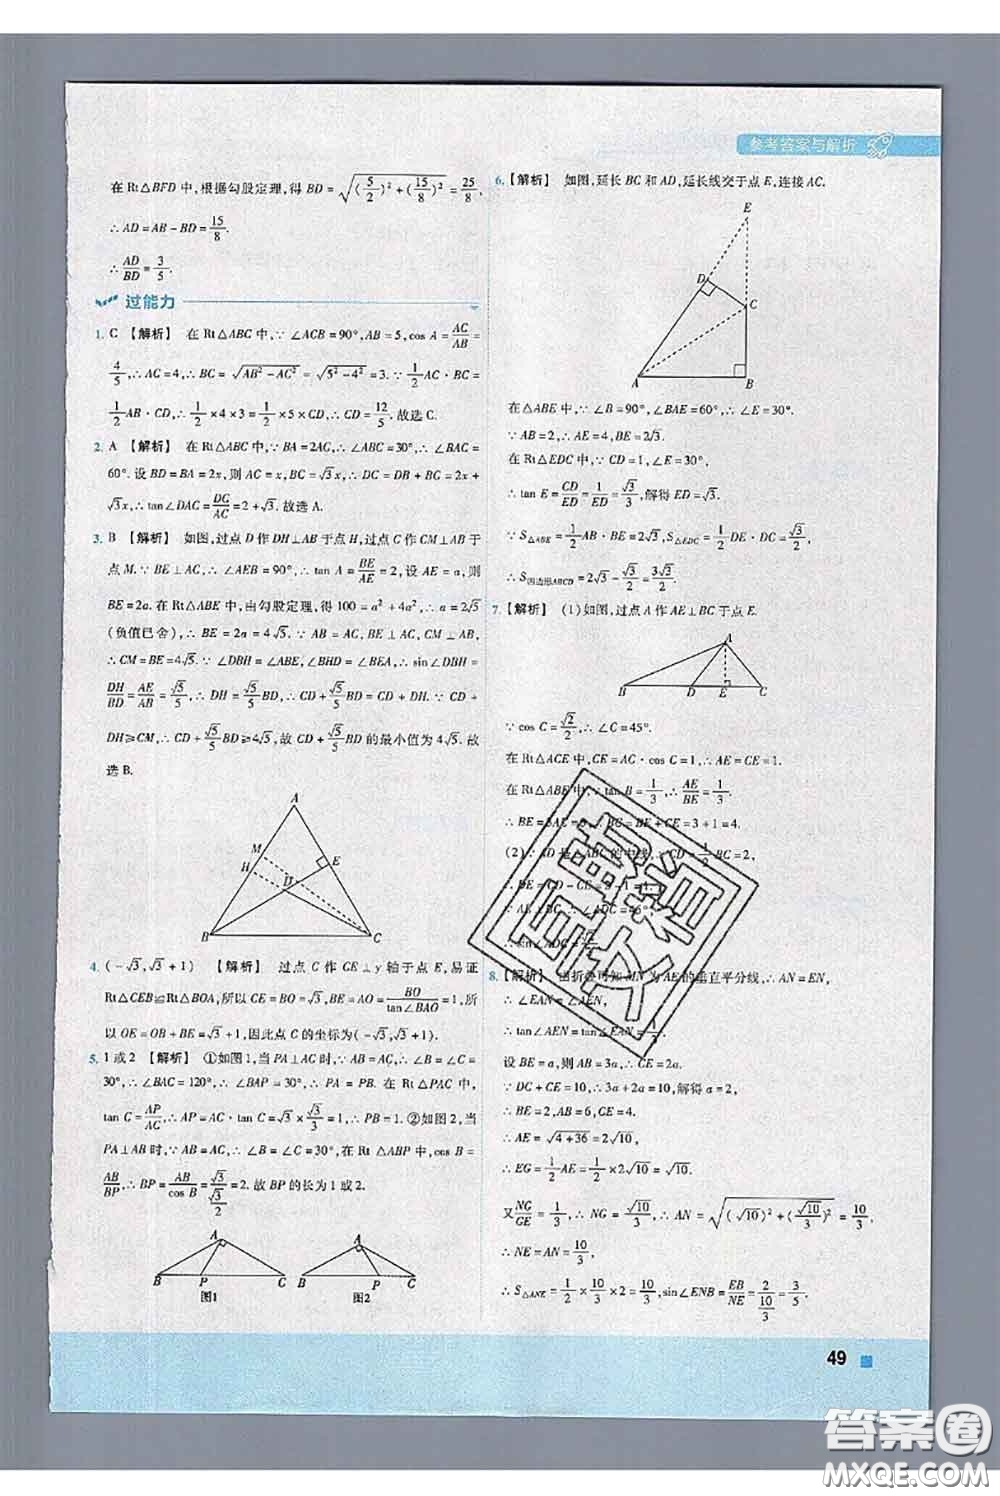 参考答案与解析
在 Rt△BFD 中,根据勾股定理,得 BD = √((5/2)² + (15/8)²) = 25/8.
∴ AD = AB − BD = 15/8.
∴ AD/BD = 3/5.
过能力
1. C 【解析】 在 Rt△ABC 中,∵ ∠ACB = 90°, AB = 5, cos A = AC/AB =
4/5, ∴ AC = 4, ∴ BC = √(AB² − AC²) = √(5² − 4²) = 3. ∵ 1/2 AC · BC =
1/2 AB · CD, ∴ 1/2 × 4 × 3 = 1/2 × 5 × CD, ∴ CD = 12/5. 故选 C.
2. A 【解析】 在 Rt△ABC 中,∵ BA = 2AC, ∴ ∠ABC = 30°, ∴ ∠BAC =
60°. 设 BD = BA = 2x, 则 AC = x, BC = √3x, ∴ DC = DB + BC = 2x +
√3x, ∴ tan∠DAC = DC/AC = 2 + √3. 故选 A.
3. B 【解析】 如图,过点 D 作 DH⊥AB 于点 H,过点 C 作 CM⊥AB 于
点 M. ∵ BE⊥AC, ∴ ∠AEB = 90°, ∴ tan A = BE/AE = 2, 设 AE = a, 则
BE = 2a. 在 Rt△ABE 中,由勾股定理,得 100 = a² + 4a², ∴ a = 2√5
(负值已舍), ∴ BE = 2a = 4√5. ∵ AB = AC, BE⊥AC, CM⊥AB,
∴ CM = BE = 4√5. ∵ ∠DBH = ∠ABE, ∠BHD = ∠BEA, ∴ sin∠DBH =
DH/BD = AE/AB = √5/5, ∴ DH = √5/5 BD, ∴ CD + √5/5 BD = CD + DH. ∵ CD +
DH≥CM, ∴ CD + √5/5 BD≥4√5, 故 CD + √5/5 BD 的最小值为 4√5. 故
选 B.
A
M
H
D
E
B
C
4. (−√3, √3 + 1) 【解析】 过点 C 作 CE⊥y 轴于点 E,易证
Rt△CEB≌Rt△BOA, 所以 CE = BO = √3, BE = AO = BO/tan∠BAO = 1, 所
以 OE = OB + BE = √3 + 1, 因此点 C 的坐标为(−√3, √3 + 1).
5. 1 或 2 【解析】 ①如图1,当 PA⊥AC 时,∵ AB = AC, ∴ ∠B = ∠C =
30°, ∴ ∠BAC = 120°, ∴ ∠BAP = 30°, ∴ PA = PB. 在 Rt△PAC 中,
tan C = AP/AC, ∴ AP = AC · tan C = √3 × √3/3 = 1, ∴ PB = 1. ②如图2,当
PA⊥AB 时,∵ AB = AC, ∴ ∠B = ∠C = 30°, 在 Rt△ABP 中,cos B =
AB/BP, ∴ BP = AB/cos B = √3/(√3/2) = 2. 故 BP 的长为 1 或 2.
A
B P C
图1
A
B P C
图2
6. 【解析】 如图,延长 BC 和 AD,延长线交于点 E,连接 AC.
E
D
C
A
B
在△ABE 中,∵ ∠B = 90°, ∠BAE = 60°, ∴ ∠E = 30°.
∵ AB = 2, ∴ AE = 4, BE = 2√3.
在 Rt△EDC 中,∵ CD = 1, ∠E = 30°,
∴ tan E = CD/ED = 1/ED = √3/3, 解得 ED = √3.
∵ S△ABE = 1/2 AB · BE = 2√3, S△EDC = 1/2 DE · DC = √3/2,
∴ S四边形ABCD = 2√3 − √3/2 = 3√3/2.
7. 【解析】 (1)如图,过点 A 作 AE⊥BC 于点 E.
A
B D E C
∵ cos C = √2/2, ∴ ∠C = 45°.
在 Rt△ACE 中,CE = AC · cos C = 1, ∴ AE = CE = 1.
在 Rt△ABE 中,∵ tan B = 1/3, ∴ AE/BE = 1/3,
∴ BE = 3AE = 3, ∴ BC = BE + CE = 3 + 1 = 4.
(2)∵ AD 是△ABC 的中线, ∴ CD = 1/2 BC = 2,
∴ DE = CD − CE = 2 − 1 = 1.
∵ AE⊥BC, ∴ ∠ADC = 45°,
∴ sin∠ADC = √2/2.
8. 【解析】 由折叠可知 MN 为 AE 的垂直平分线, ∴ AN = EN,
∴ ∠EAN = ∠AEN,
∴ tan∠AEN = tan∠EAN = 1/3.
设 BE = a, 则 AB = 3a, ∴ CE = 2a.
∵ DC + CE = 10, ∴ 3a + 2a = 10, 解得 a = 2,
∴ BE = 2, AB = 6, CE = 4.
∴ AE = √(4 + 36) = 2√10,
∴ EG = 1/2 AE = 1/2 × 2√10 = √10.
又 NG/GE = 1/3, ∴ NG = √10/3, ∴ AN = √((√10)² + (√10/3)²) = 10/3,
∴ NE = AN = 10/3,
∴ S△ANE = 1/2 × 10/3 × 2 = 10/3, sin∠ENB = EB/NE = 2/(10/3) = 3/5.
49
答案圈
MXQE.COM